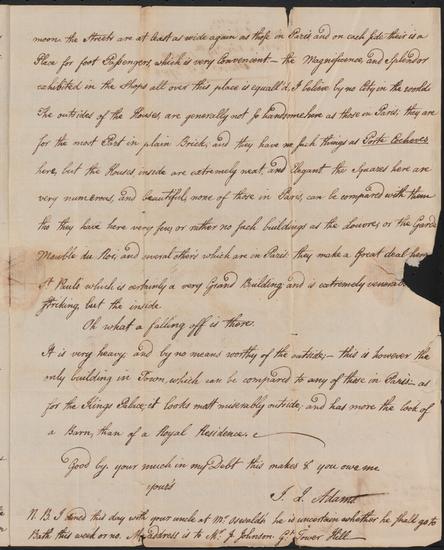 moon the Streets are at least as wide again as those in Paris, and on each side their is a
Place for foot Passengers, which is very Convenient – the Magnificence, and Splendor
exhibited in the Shops all over this place is equall'd, I believe by no City in the world.
The outsides of the Houses, are generally not so handsome here as those in Paris, they are
for the most Part in plain Brick, and they have no such things as Porte Cocheres
here, but the Houses inside are extremely neat, and Elegant the Squares here are
very numerous, and beautiful, none of those in Paris, can be compared with them
tho they have here very few or rather no such buildings as the Louvre, or the Gard
Meuble du Roi, and several others which are in Paris. they make a Great deal here
St Pauls which is certainly a very Grand Building and is extremely
striking, but the inside.
Oh what a falling off is there.
It is very heavy, and by no means worthy of the outside; – this is however the
only building in Town, which can be compared to any of those in Paris. as
for the Kings Palace, it looks most miserably outside, and has more the look of
a Barn, than of a Royal Residence.
Good by. your much in my Debt this makes 8 you owe me
yours
J. Q. Adams
N. B. I dined this day with your uncle at Mr. Oswald's he is uncertain whether he shall go to
Bath this week or no. My address is to Mr. J Johnson. Gt. Tower Hill